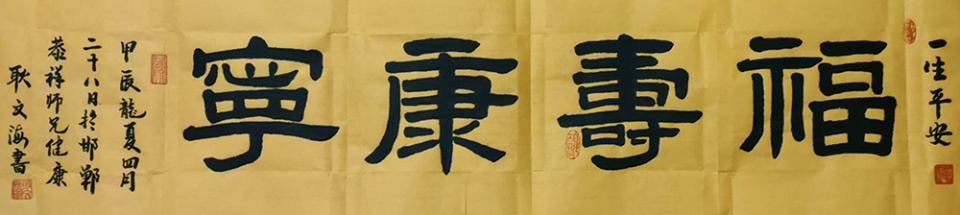 一生平安
福壽康寧
甲辰龍夏四月
二十八日於邯鄲
恭祥师兄健康
耿文海書